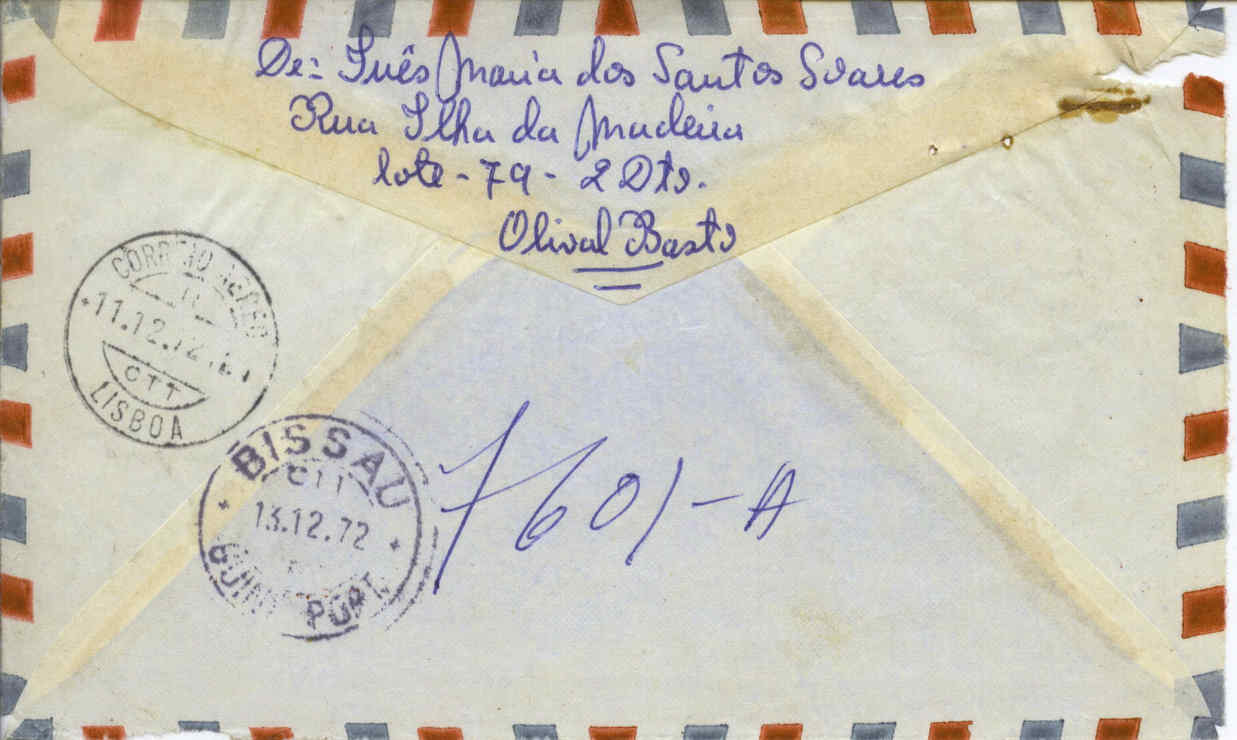 De: Inês Maria dos Santos Soares
Rua Ilha da Madeira
lote - 79 - 2 Dto.
Olival Basto
CORREIO AEREO
11.12.72
CTT
LISBOA
BISSAU
CTT
13.12.72
GUINE PORT.
7601-A